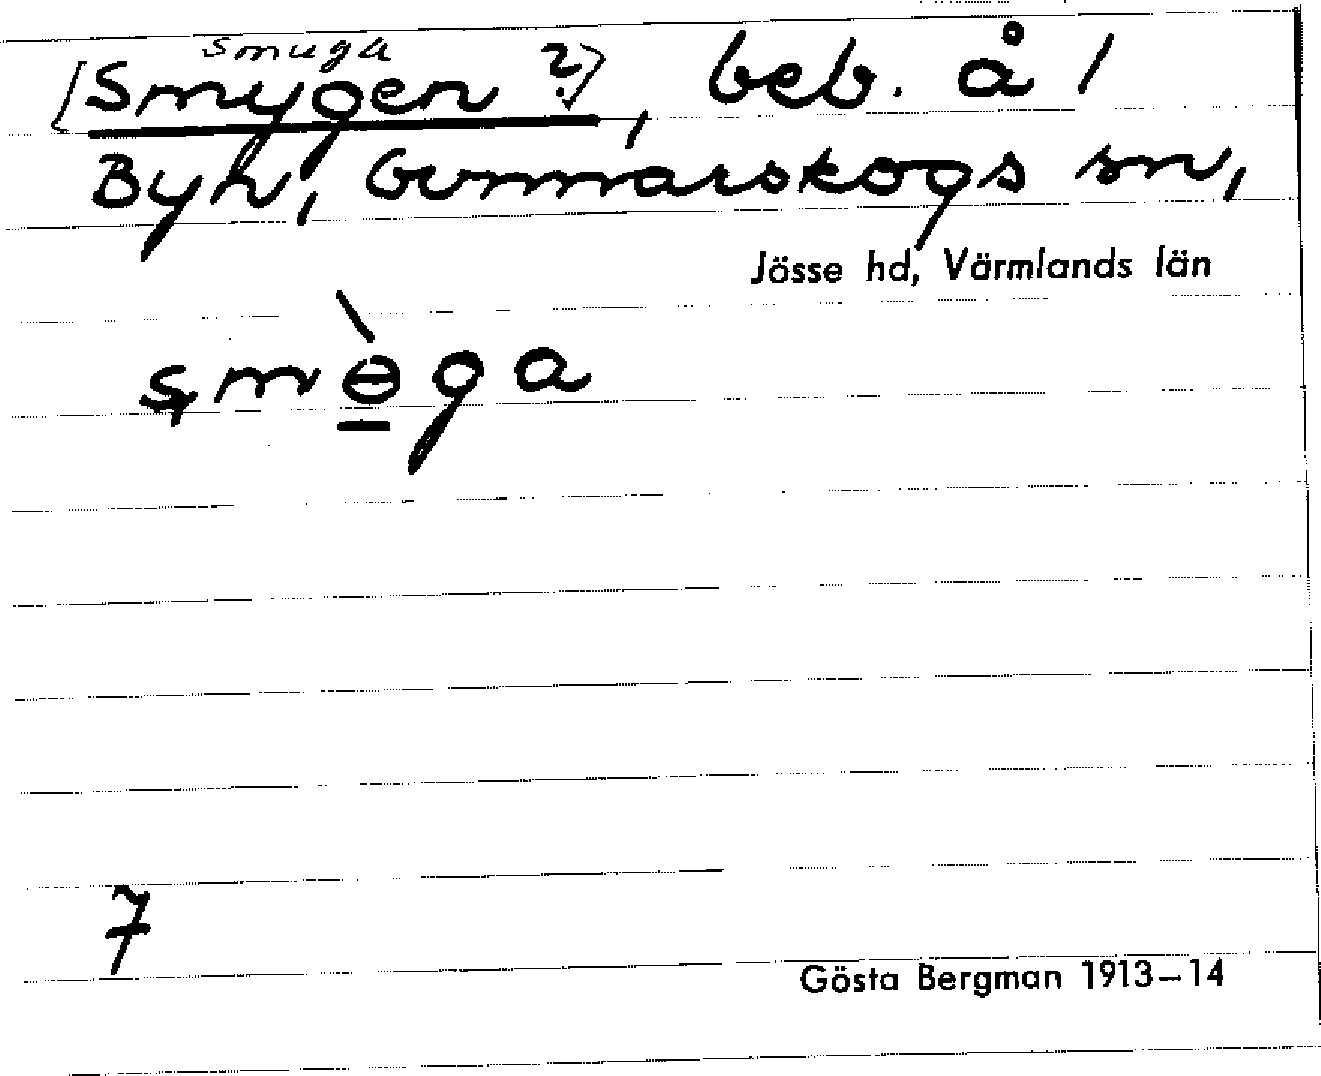 smuga
[Smygen ?], beb. å /
Byn, Gunnarskogs sn,
Jösse hd, Värmlands län
smɵ̀ga
7
Gösta Bergman 1913–14